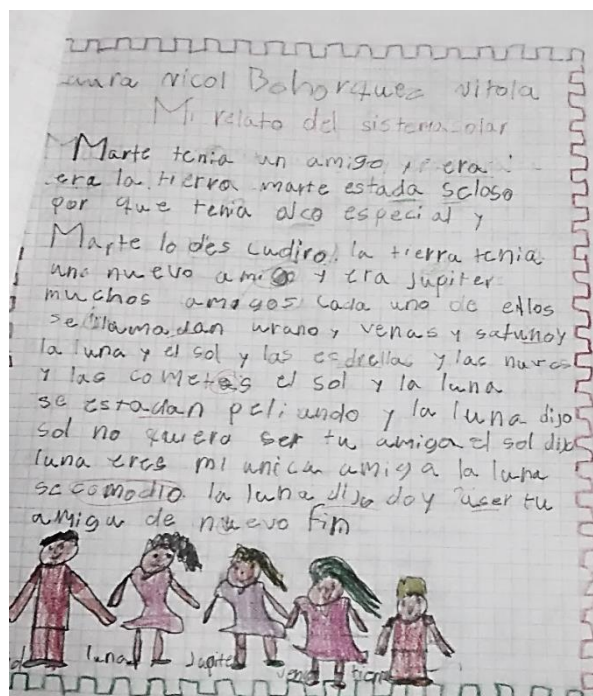 Laura Nicol Bohorquez Vitola
Mi relato del sistema olar
Marte tenia un amigo, y era
era la tierra marte estada scloso
por que tenia alco especial y
Marte lo des cudiro. la tierra tenia
uno nuevo amigo y era Jupiter
muchos amigos cada uno de ellos
se llamadan urano, venas y satuno y
la luna y el sol y las esdrellas y las nuves
y las cometas el sol y la luna
se estadan peliando y la luna dijo
sol no quiero ser tu amiga el sol dijo
luna eres mi unica amiga la luna
se comodio. la luna dijo doy user tu
amiga de nuevo fin
luna Jupite